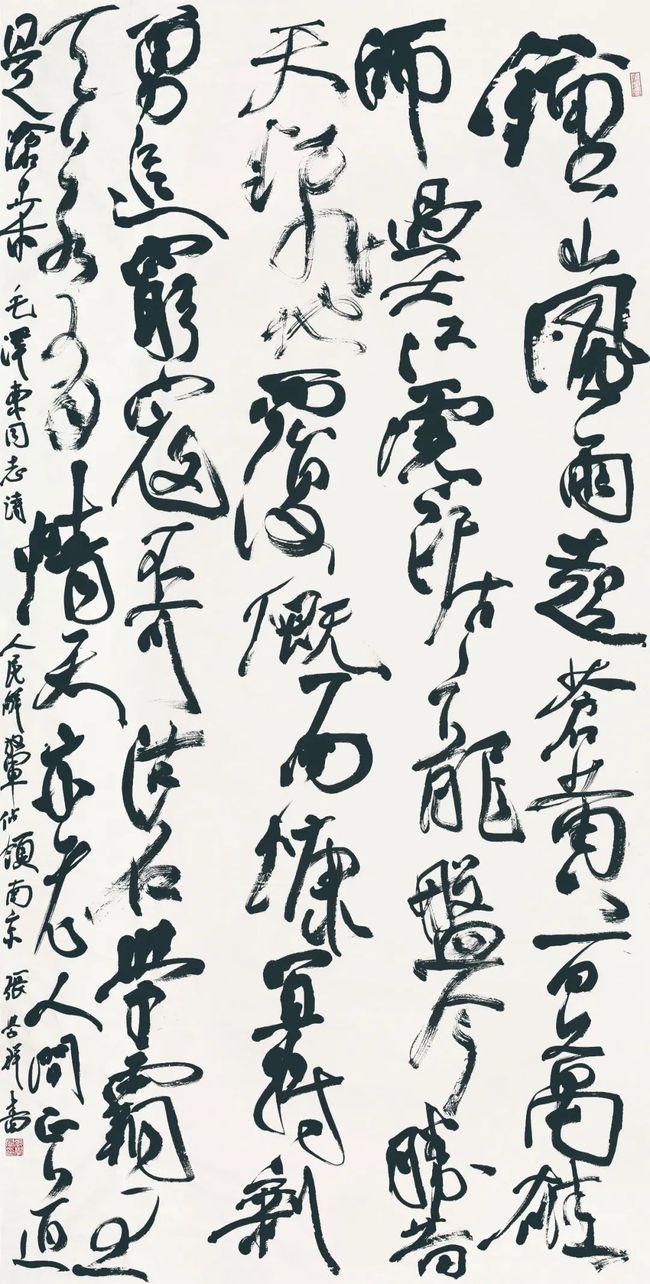 鍾山風雨起蒼黃百萬雄
師過大江虎踞龍盤今勝昔
天翻地覆慨而慷宜將剩
勇追窮寇不可沽名學霸王
天若有情天亦老人間正道
是滄桑 毛澤東同志詩 人民解放軍佔領南京 張祥書